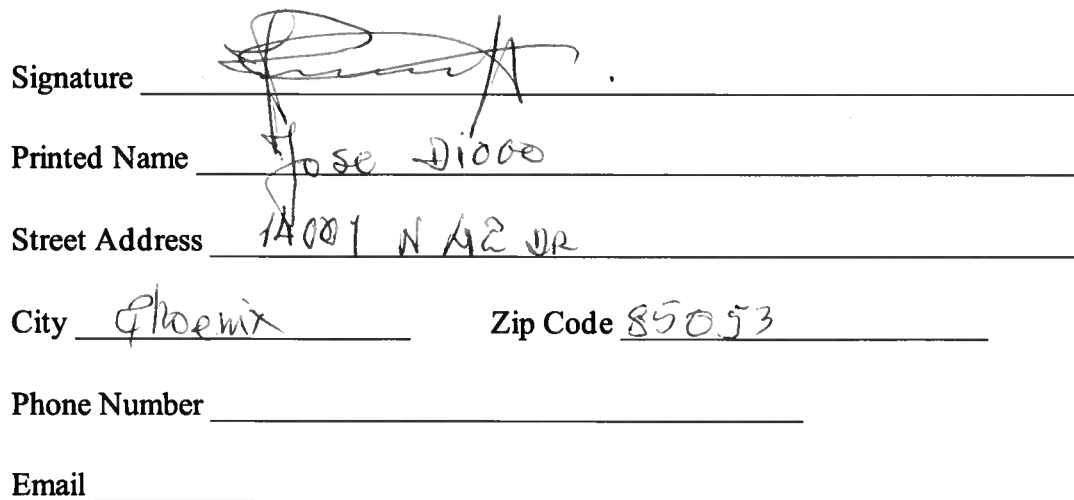 Signature
Printed Name Jose Diogo
Street Address 14001 N 42 DR
City Phoenix Zip Code 85053
Phone Number
Email